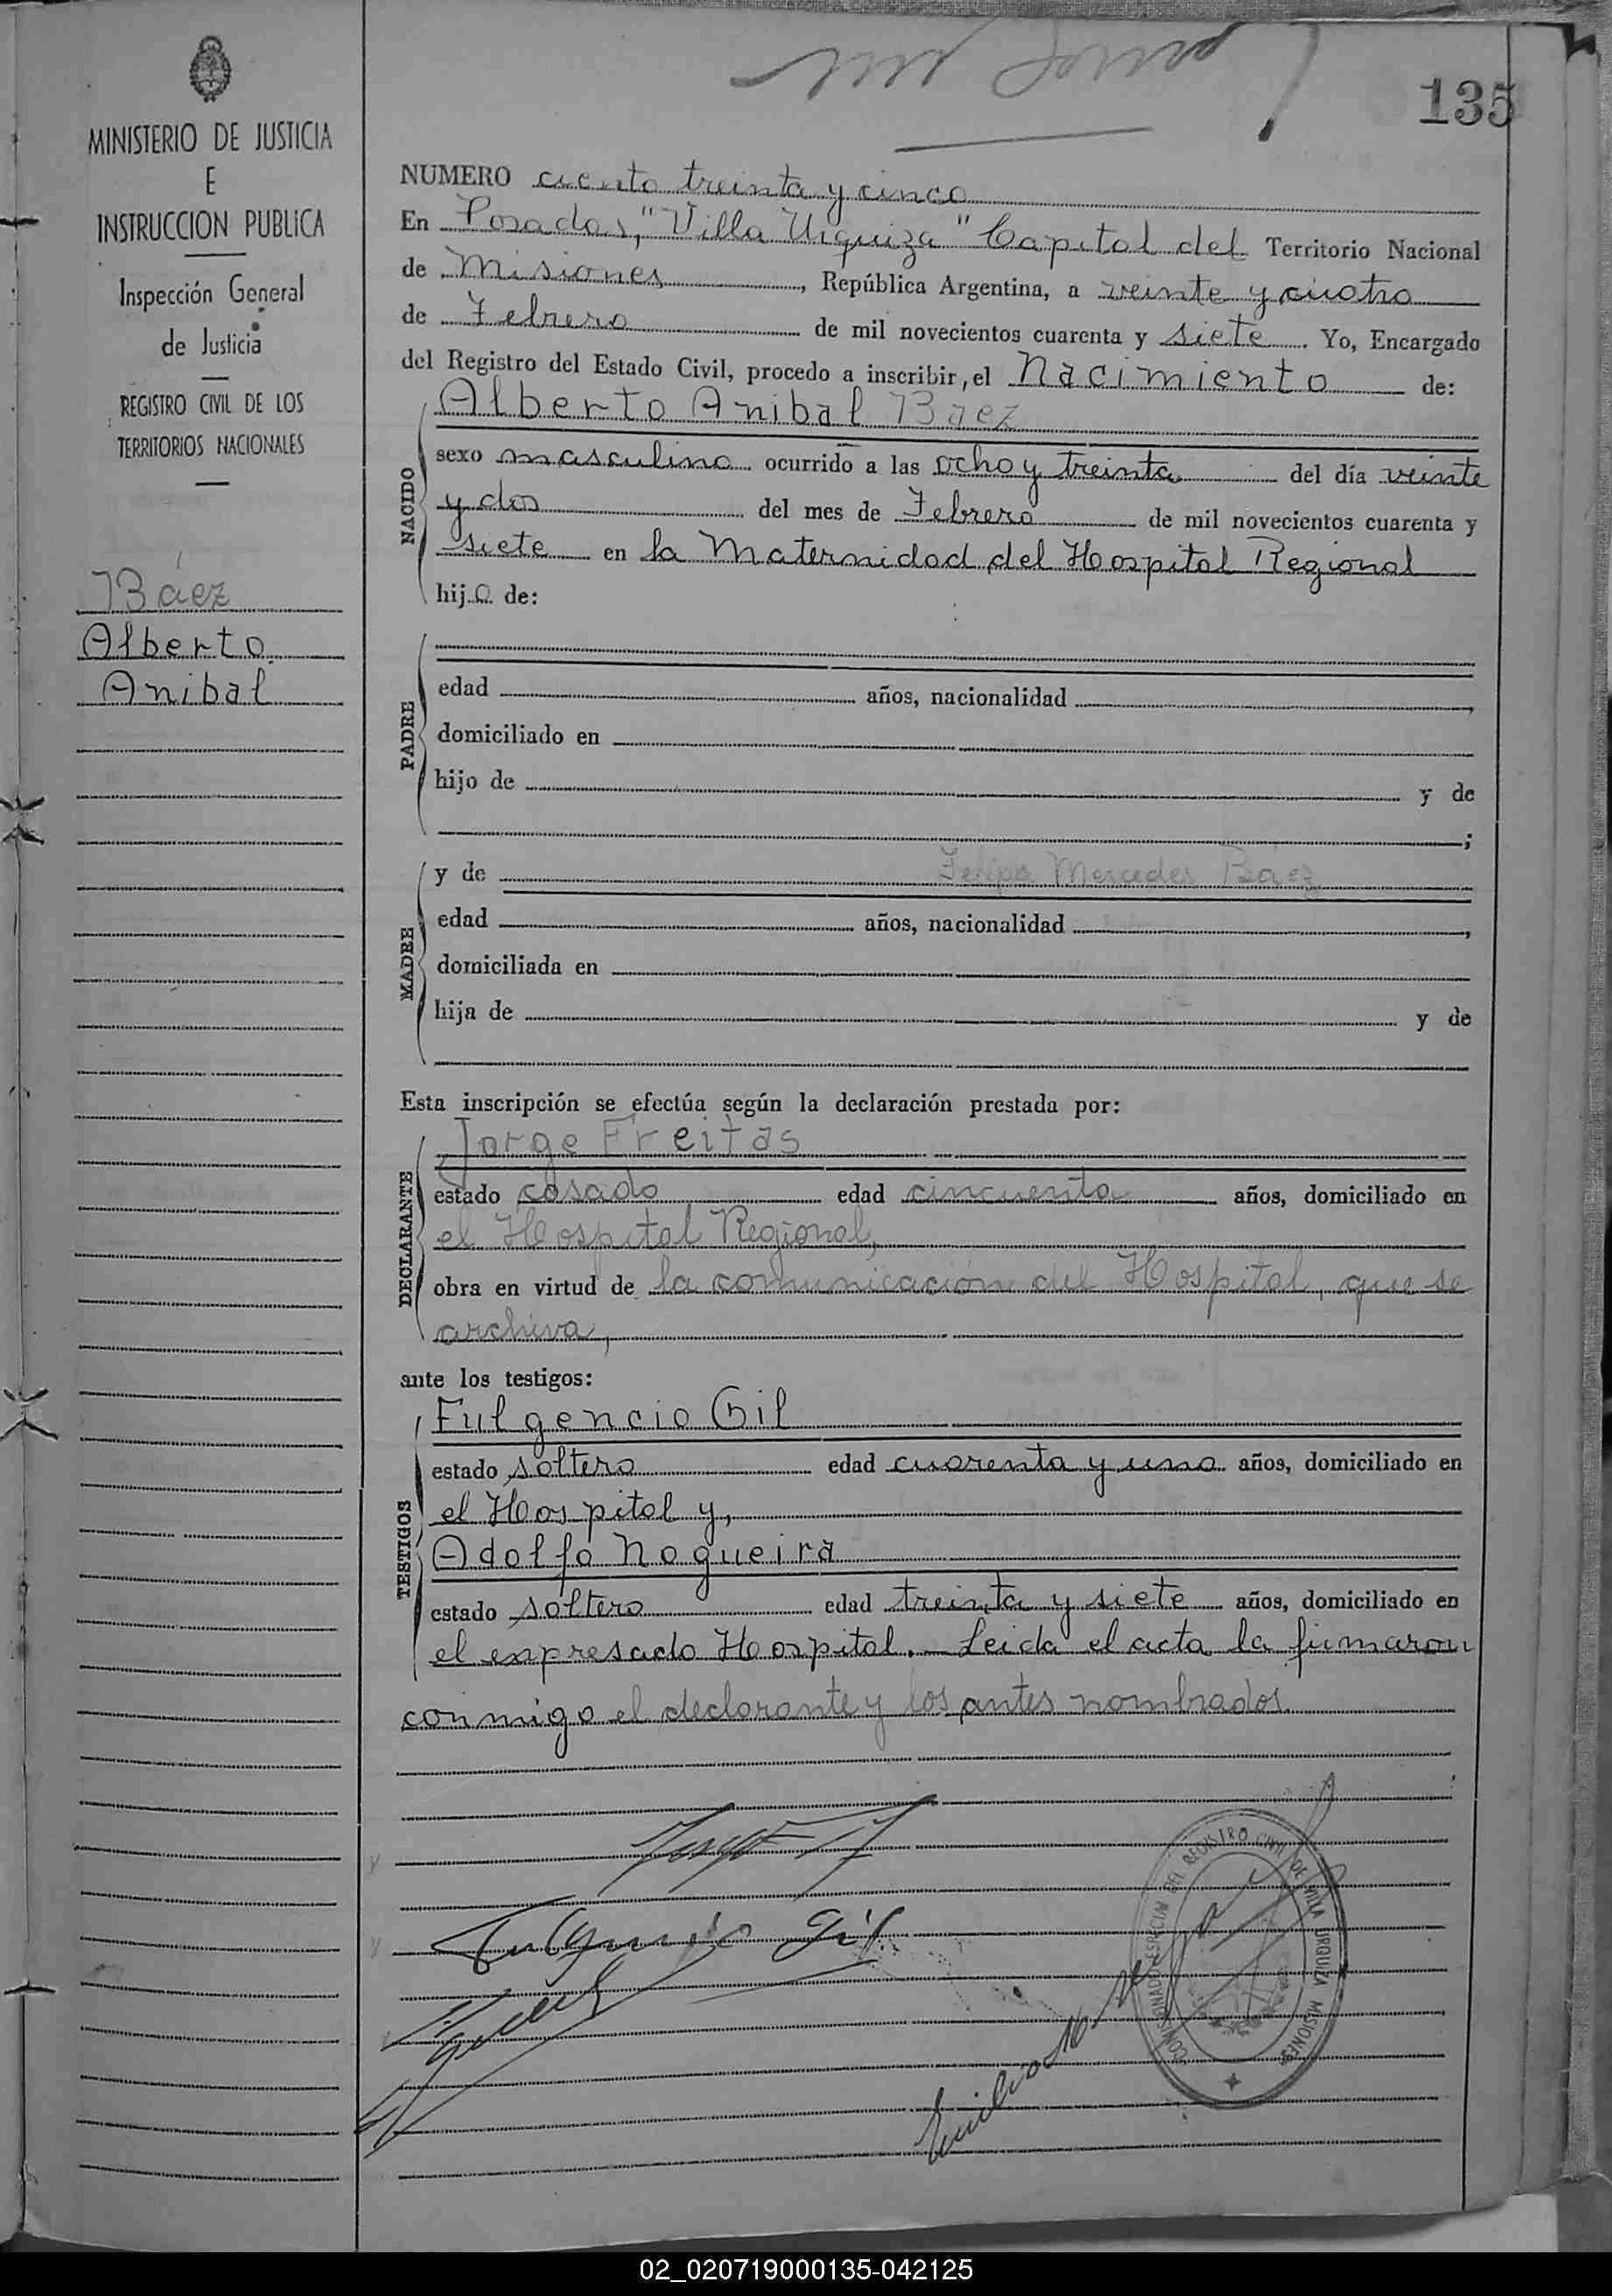 135
MINISTERIO DE JUSTICIA
E
INSTRUCCION PUBLICA
Inspección General
de Justicia
REGISTRO CIVIL DE LOS
TERRITORIOS NACIONALES
Báez
Alberto
Anibal
NUMERO ciento treinta y cinco
En Posadas, "Villa Urquiza" Capital del Territorio Nacional
de Misiones, República Argentina, a veinte y cuatro
de Febrero de mil novecientos cuarenta y siete. Yo, Encargado
del Registro del Estado Civil, procedo a inscribir, el Nacimiento de:
Alberto Anibal Baez
NACIDO
sexo masculino ocurrido a las ocho y treinta del día veinte
y dos del mes de Febrero de mil novecientos cuarenta y
siete en la Maternidad del Hospital Regional
hijo de:
PADRE
edad años, nacionalidad ,
domiciliado en
hijo de y de
;
MADRE
y de Felipa Mercedes Báez
edad años, nacionalidad ,
domiciliada en
hija de y de
Esta inscripción se efectúa según la declaración prestada por:
DECLARANTE
Jorge Freitas
estado casado edad cincuenta años, domiciliado en
el Hospital Regional,
obra en virtud de la comunicación del Hospital, que se
archiva,
ante los testigos:
TESTIGOS
Fulgencio Gil
estado soltero edad cuarenta y uno años, domiciliado en
el Hospital y,
Adolfo Nogueira
estado soltero edad treinta y siete años, domiciliado en
el expresado Hospital. - Leida el acta la firmaron
conmigo el declarante y los antes nombrados
Fulgencio Gil
COMISIONADO ESPECIAL DEL REGISTRO CIVIL DE VILLA URQUIZA MISIONES
02_020719000135-042125